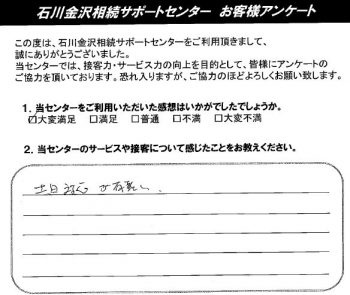 石川金沢相続サポートセンター お客様アンケート
この度は、石川金沢相続サポートセンターをご利用頂きまして、
誠にありがとうございました。
当センターでは、接客力・サービス力の向上を目的として、皆様にアンケートへ
のご協力を頂いております。恐れ入りますが、ご協力のほどよろしくお願い致します。
1. 当センターをご利用いただいた感想はいかがでしたでしょうか。
☑大変満足 □満足 □普通 □不満 □大変不満
2. 当センターのサービスや接客について感じたことをお教えください。
土日対応が有難い。